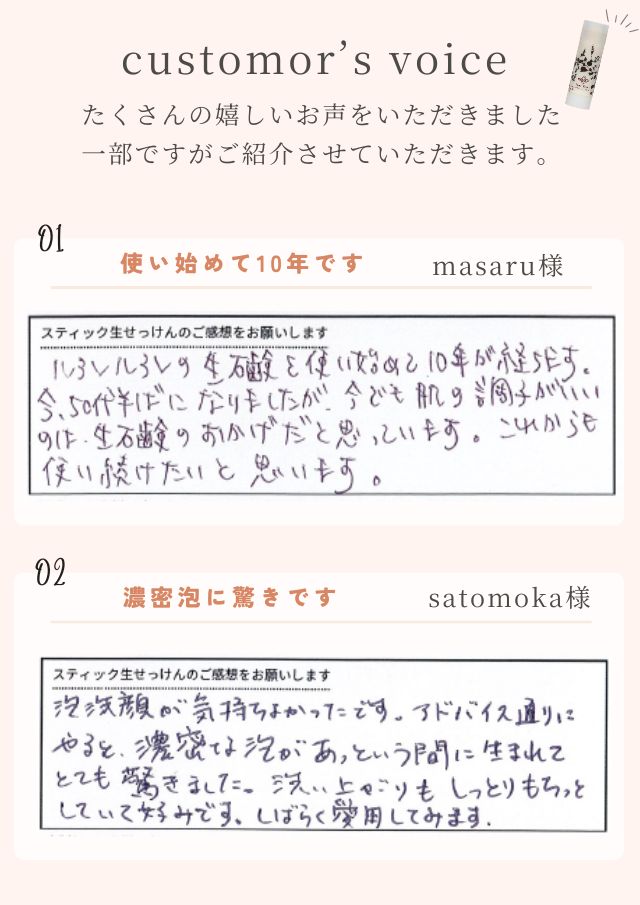 customor’s voice
たくさんの嬉しいお声をいただきました
一部ですがご紹介させていただきます。
01
使い始めて10年です
masaru様
スティック生せっけんのご感想をお願いします
ルアンルアンの生石鹸を使い始めて10年が経ちます。
今、50代半ばになりましたが、今でも肌の調子がいい
のは、生石鹸のおかげだと思っています。これからも
使い続けたいと思います。
02
濃密泡に驚きです
satomoka様
スティック生せっけんのご感想をお願いします
泡洗顔が気持ちよかったです。アドバイス通りに
やると、濃密な泡があっという間に生まれて
とても驚きました。洗い上がりもしっとりもちっと
していて好みです。しばらく愛用してみます.